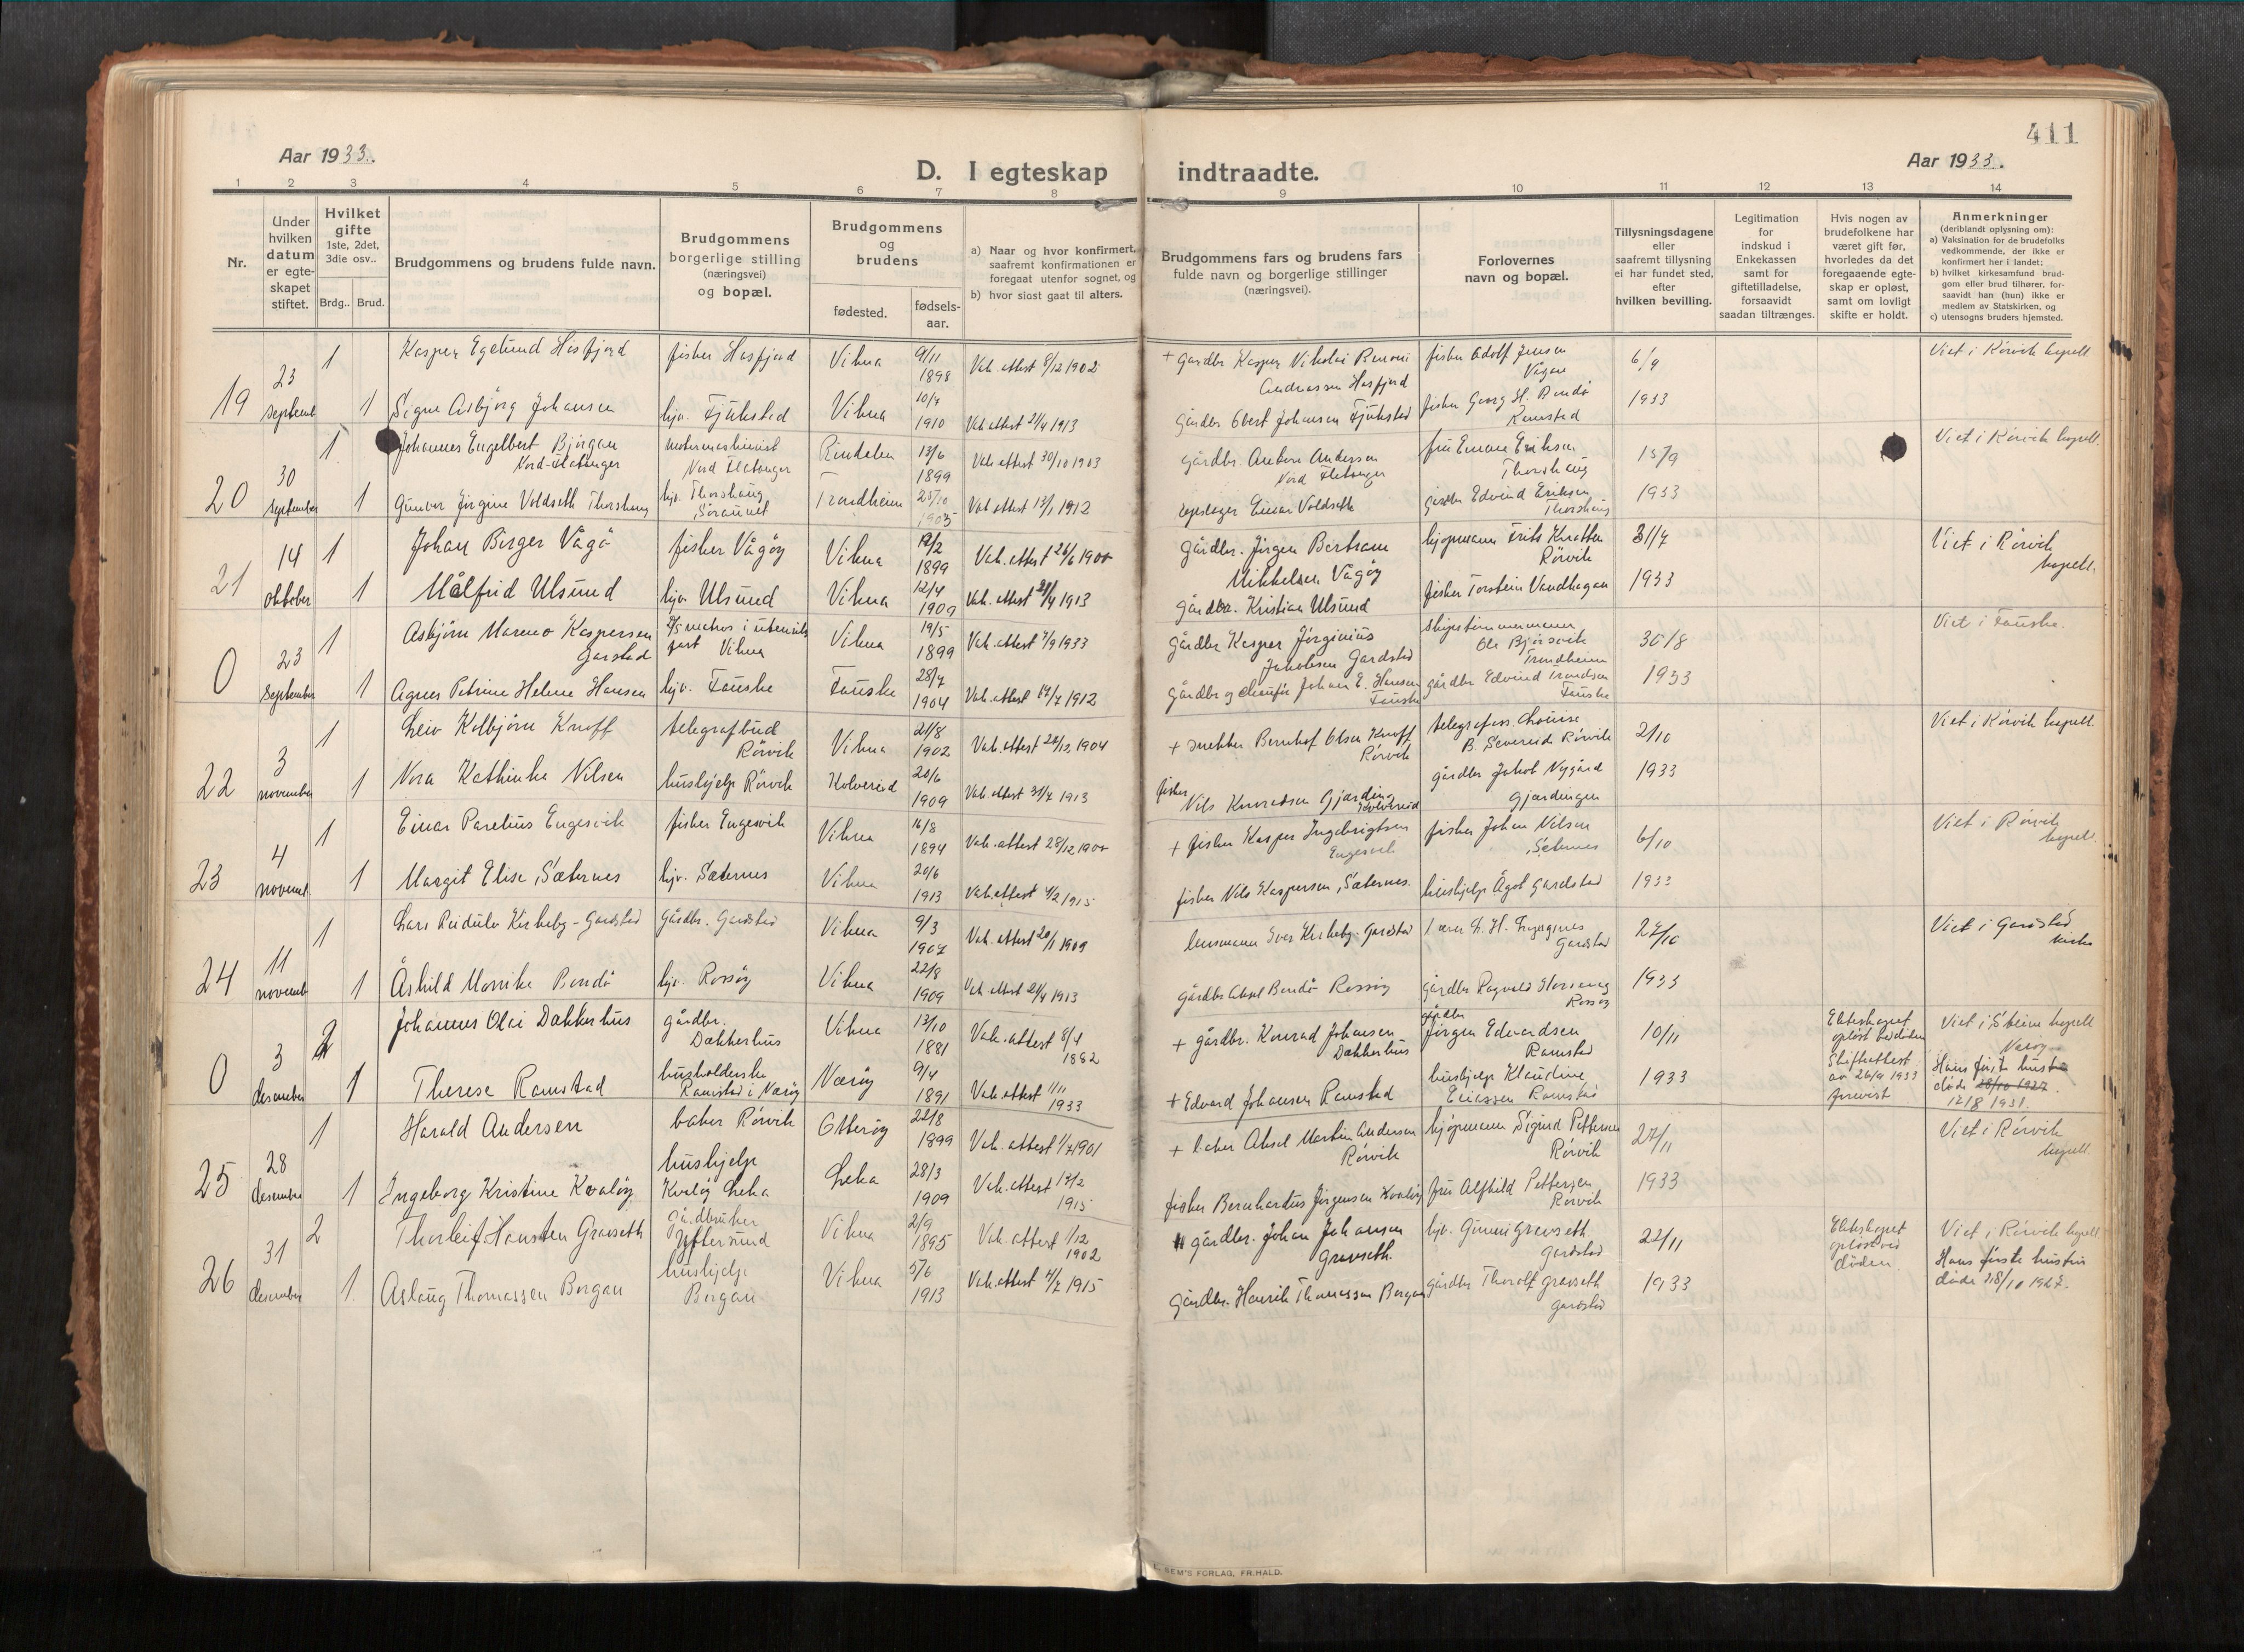 411
Aar 1933.
Aar 1933.
D. I egteskap indtraadte.
1 2 3 4 5 6 7 8 9 10 11 12 13 14
Nr.
Under hvilken datum er egte-skapet stiftet.
Hvilket gifte 1ste, 2det, 3die osv..
Brdg.. Brud.
Brudgommens og brudens fulde navn.
Brudgommens borgerlige stilling (næringsvei) og bopæl.
Brudgommens og brudens
fødested.
fødsels-aar.
a) Naar og hvor konfirmert, saafremt konfirmationen er foregaat utenfor sognet, og
b) hvor sidst gaat til alters.
Brudgommens fars og brudens fars fulde navn og borgerlige stillinger (næringsvei).
Forlovernes navn og bopæl.
Tillysningsdagene eller saafremt tillysning ei har fundet sted, efter hvilken bevilling.
Legitimation for indskud i Enkekassen samt for giftetilladelse, forsaavidt saadan tiltrænges.
Hvis nogen av brudefolkene har været gift før, hvorledes da det foregaaende egte-skap er opløst, samt om lovligt skifte er holdt.
Anmerkninger (deriblandt oplysning om):
a) Vaksination for de brudefolks vedkommende, der ikke er konfirmert her i landet;
b) hvilket kirkesamfund brud-gom eller brud tilhører, for-saavidt han (hun) ikke er medlem av Statskirken, og
c) utensogns bruders hjemsted.
19 23 septemb 1 Kasper Egelund Hosfjord fisker Hosfjord Vikna 9/11 1898 Vak. attest 8/12 1902 + Gårdbr Kasper Nikolai Benoni Andreassen Hosfjord fisker Adolf Jensen Vågan 6/9 Viet i Rørvik kapell
1 Signe Asbjørg Johansen hjv. Fjukstad Vikna 10/7 1910 Vak. attest 21/4 1913 Gårdbr Obert Johansen Fjukstad fisker Georg H. Bondø Ramstad 1933
20 30 september 1 Johannes Engelbert Bjørgan Nord-Flatanger motormaskinist Nord Flatanger Rindalen 13/6 1899 Vak attest 30/10 1903 gårdbr. Anton Andersen Nord Flatanger fru Emma Eriksen Thorshaug 15/9 Viet i Rørvik kapell.
1 Gunvor Jørgine Voldseth Thorshaug hjv. Thorshaug Trondheim Vak attest 13/1 1912 repslager Einar Voldseth gårdbr Edvind Eriksen Thorshaug 1933
21 14 oktober 1 Johan Birger Vågø fisker Vågøy Vikna 12/2 1899 Vak. attest 26/6 1900 gårdbr. Jørgen Bertram Mikkelsen Vågøy kjøpmann Frits Knatten Rørvik 31/7 Viet i Rørvik kapell.
1 Målfrid Ulsund hjv. Ulsund Vikna 12/4 1909 Vak. attest 21/4 1913 Gårdbr. Kristian Ulsund fisker Torstein Vandhagan 1933
0 23 september 1 Asbjørn Mareno Kaspersen Garstad matros i utenriks fart Vikna Vikna 19/5 1899 Vak. attest 7/9 1933 gårdbr Kasper Jørginius Jakobsen Gardstad skipstimmermann Ole Bjørsvik Trondheim 30/8 Viet i Fauske.
1 Agnes Petrine Helene Hansen hjv. Fauske Fauske 28/7 1904 Vak. attest 19/7 1912 gårdbr og chauffør Johan E. Hansen Fauske gårdbr Edvind Trondsen Fauske 1933
22 3 november 1 Leiv Kolbjørn Knoff telegrafbud Rørvik Vikna 21/8 1902 Vak. attest 28/12 1904 + snekker Bernhof Olsen Knoff Rørvik telegrafass. Louise B. Severeid Rørvik 2/10 Viet i Rørvik kapell.
1 Nora Kathinka Nilsen hushjelp Rørvik Kolvereid 20/6 1909 Vak attest 31/7 1913 fisker Nils Konradsen Gjerdinga Kolvereid gårdbr Jakob Nygård Gjerdingen 1933
23 4 novemb. 1 Einar Parelius Engesvik fisker Engesvik Vikna 16/8 1894 Vak. attest 28/12 1900 + fisker Kasper Ingebrigtsen Engesvik fisker Johan Nilsen Sæternes 6/10 Viet i Rørvik kapell.
1 Margit Elise Sæternes hjv. Sæternes Vikna 20/6 1913 Vak. attest 4/2 1915 fisker Nils Kaspersen Sæternes. hushjelp Ågot Gardstad 1933
24 11 novemb 1 Lars Reidulv Kirkeby-Gardstad gårdbr. Gardstad Vikna 9/3 1907 Vak attest 20/1 1909 lensmann Iver Kirkeby-Gardstad Gardstad 27/10 Viet i Gardstad kirke
1 Åshild Marrika Bondø hjv. Rossøy Vikna 22/8 1909 Vak attest 21/4 1913 gårdbr Aksel Bondø Rossøy gårdbr Ragvald Storeng Rossøy 1933
0 3 desember 2 Johannes Olai Dakkerhus gårdbr. Dakkerhus Vikna 13/10 1881 Vak. attest 8/4 1882 + gårdbr. Konrad Johansen Dakkerhus gårdbr Jørgen Edvardsen Ramstad 10/11 Ekteskapet opløst ved døden Skifteattest av 26/9 1933 forevist Viet i Steine kapell Nærøy Hans første hustru døde 28/10 1927 12/8 1931.
1 Therese Ramstad husholderske Ramstad i Nærøy Nærøy 9/4 1891 Vak attest 1/11 1933 + Edvard Johansen Ramstad hushjelp Klaudine Eriassen Ramstad 1933
25 28 desember 1 Harald Andersen baker Rørvik Otterøy 22/8 1899 Vak. attest 1/7 1901 + baker Aksel Martin Andersen Rørvik kjøpmann Sigurd Pettersen Rørvik 27/11 Viet i Rørvik kapell.
1 Ingeborg Kristine Kvaløy hushjelp Kvaløy Leka Leka 28/3 1909 Vak. attest 13/2 1915 fisker Bernhardus Jørgensen Kvaløy fru Alfhild Pettersen Rørvik 1933
26 31 desember 2 Thorleif Hansten Gravseth gårdbruker Vikna 2/9 1895 Vak. attest 1/12 1902 gårdbr. Johan Johansen Gravseth. hjv. Gunni Gravseth Gardstad 22/11 Ekteskapet opløst ved døden. Viet i Rørvik kapell Hans første hustru døde 28/10 1927.
1. Aslaug Thomassen Borgan hushjelp Borgan Vikna 5/6 1913 Vak. attest 4/7 1915 Gårdbr. Henrik Thomassen Borgan gårdbr Thoralf Gravseth Gardstad 1933
SEM'S FORLAG, FR. HALD.